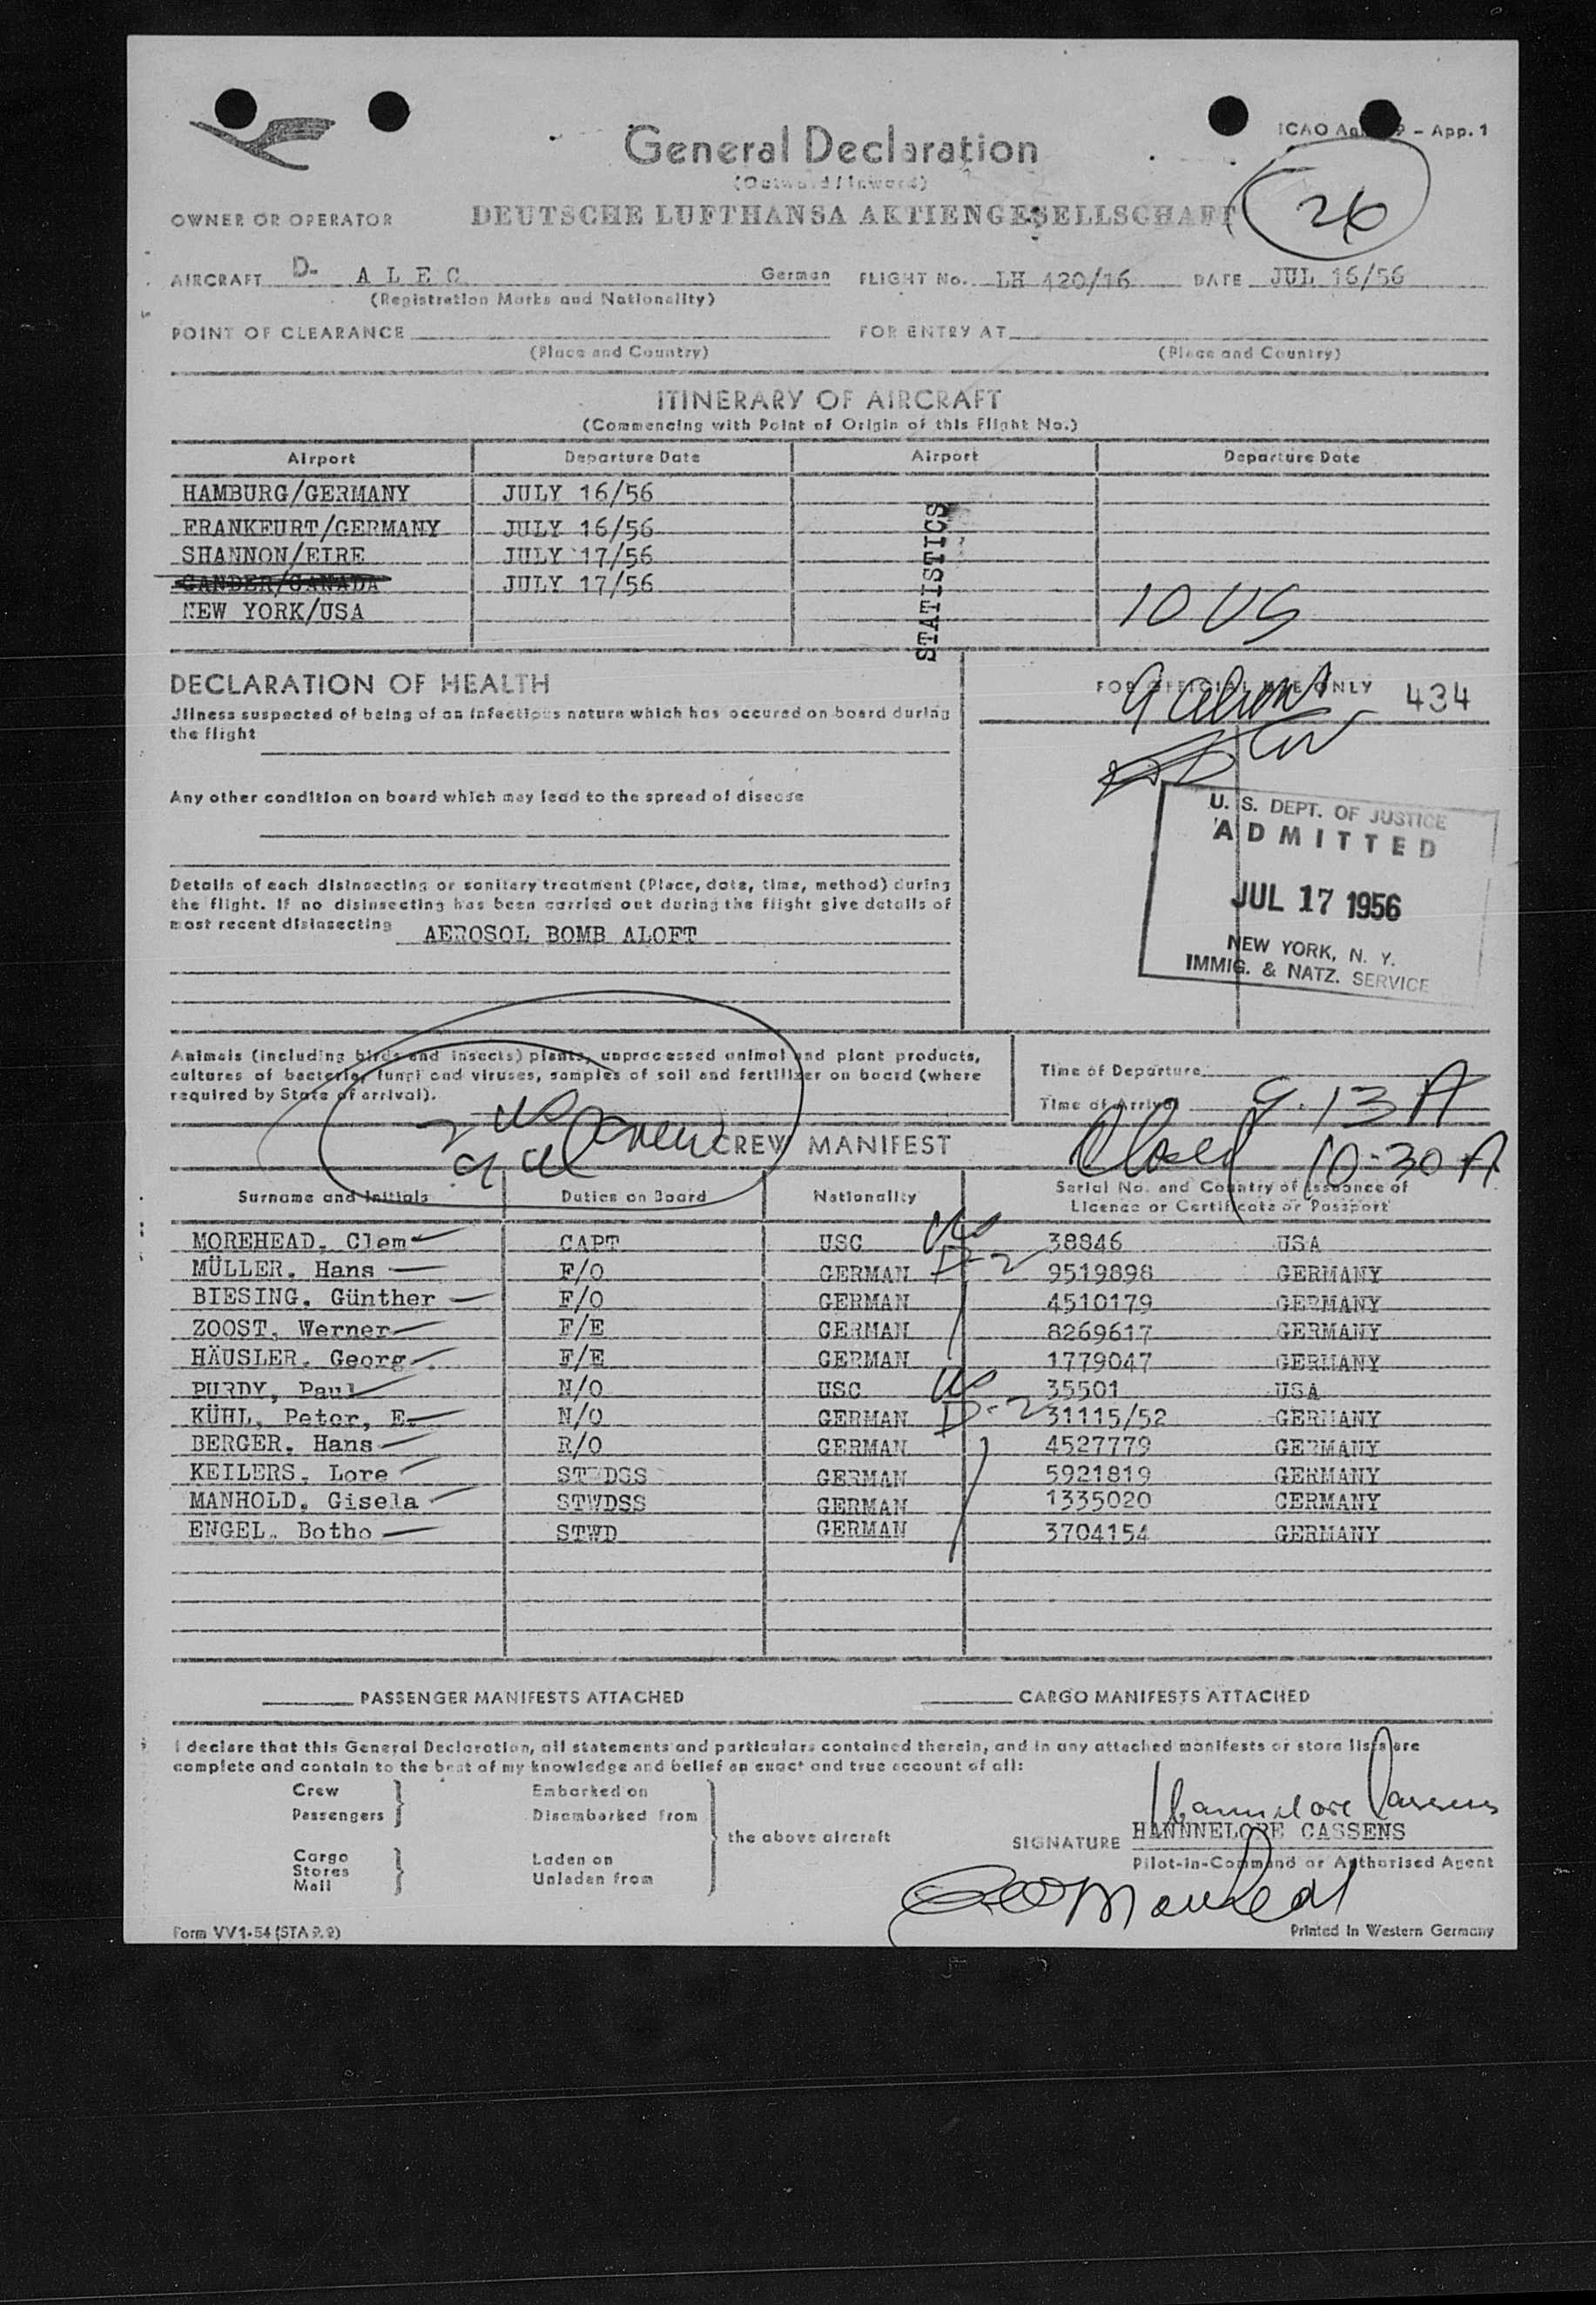 ICAO - App. 1
General Declaration
(Outward/Inward)
26
OWNER OR OPERATOR DEUTSCHE LUFTHANSA AKTIENGESELLSCHAFT
AIRCRAFT D- A L E C German FLIGHT No. LH 420/16 DATE JUL 16/56
(Registration Marks and Nationality)
POINT OF CLEARANCE FOR ENTRY AT
(Place and Country) (Place and Country)
ITINERARY OF AIRCRAFT
(Commencing with Point of Origin of this Flight No.)
Airport Departure Date Airport Departure Date
HAMBURG/GERMANY JULY 16/56
FRANKFURT/GERMANY JULY 16/56
SHANNON/EIRE JULY 17/56
GANDER/CANADA JULY 17/56
NEW YORK/USA
STATISTICS
10 US
DECLARATION OF HEALTH
FOR OFFICIAL USE ONLY 434
Jllness suspected of being of an infectious nature which has occured on board during
the flight
Any other condition on board which may lead to the spread of disease
U. S. DEPT. OF JUSTICE
ADMITTED
JUL 17 1956
NEW YORK, N. Y.
IMMIG. & NATZ. SERVICE
Details of each disinsecting or sanitary treatment (Place, date, time, method) during
the flight. If no disinsecting has been carried out during the flight give details of
most recent disinsecting AEROSOL BOMB ALOFT
Animals (including birds and insects) plants, unprocessed animal and plant products,
cultures of bacteria, fungi and viruses, samples of soil and fertilizer on board (where
required by State of arrival).
Time of Departure
Time of Arrival 9:13 A
Closed 10-30 A
CREW MANIFEST
Surname and Initials Duties on Board Nationality Serial No. and Country of Issuance of
Licence or Certificate or Passport
MOREHEAD, Clem CAPT USC 38846 USA
MÜLLER, Hans F/O GERMAN D-2 9519898 GERMANY
BIESING, Günther F/O GERMAN 4510179 GERMANY
ZOOST, Werner F/E GERMAN 8269617 GERMANY
HÄUSLER, Georg F/E GERMAN 1779047 GERMANY
PURDY, Paul N/O USC 35501 USA
KÜHL, Peter, E. N/O GERMAN D-2 31115/52 GERMANY
BERGER, Hans R/O GERMAN 4527779 GERMANY
KEILERS, Lore STWDSS GERMAN 5921819 GERMANY
MANHOLD, Gisela STWDSS GERMAN 1335020 GERMANY
ENGEL, Botho STWD GERMAN 3704154 GERMANY
PASSENGER MANIFESTS ATTACHED CARGO MANIFESTS ATTACHED
I declare that this General Declaration, all statements and particulars contained therein, and in any attached manifests or store lists are
complete and contain to the best of my knowledge and belief an exact and true account of all:
Crew Embarked on
Passengers Disembarked from
the above aircraft
Cargo Laden on
Stores Unladen from
Mail
Hannelore Cassens
SIGNATURE HANNNELORE CASSENS
Pilot-in-Command or Authorised Agent
Form VV1-54 (STA 9.2) Printed in Western Germany